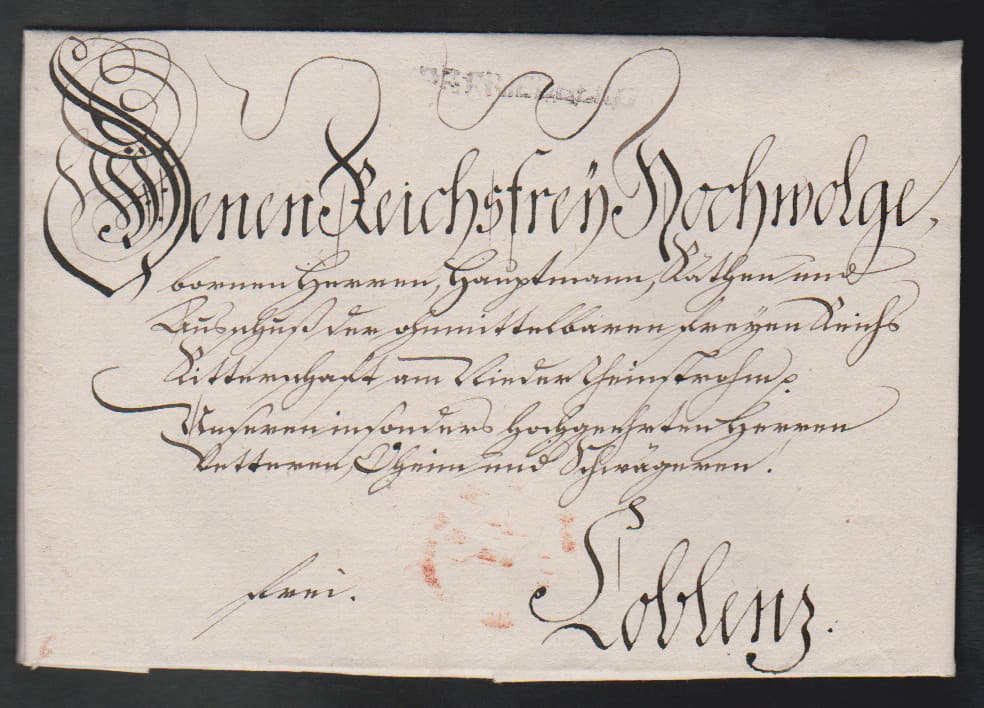 Denen Reichsfreÿ Hochwolge,
bornen Herren, Hauptmann, Räthen und
Ausschuß der ohnmittelbaren freyen Reichs
Ritterschafft am Nieder Rheinstrohm
Unseren insonders Hochgeehrten Herren
Vetteren, Oheim und Schwägeren.
frei.
Coblenz.